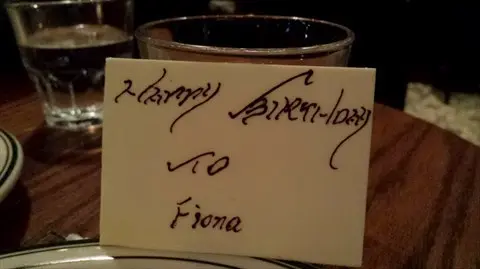 Happy Birthday
To
Fiona